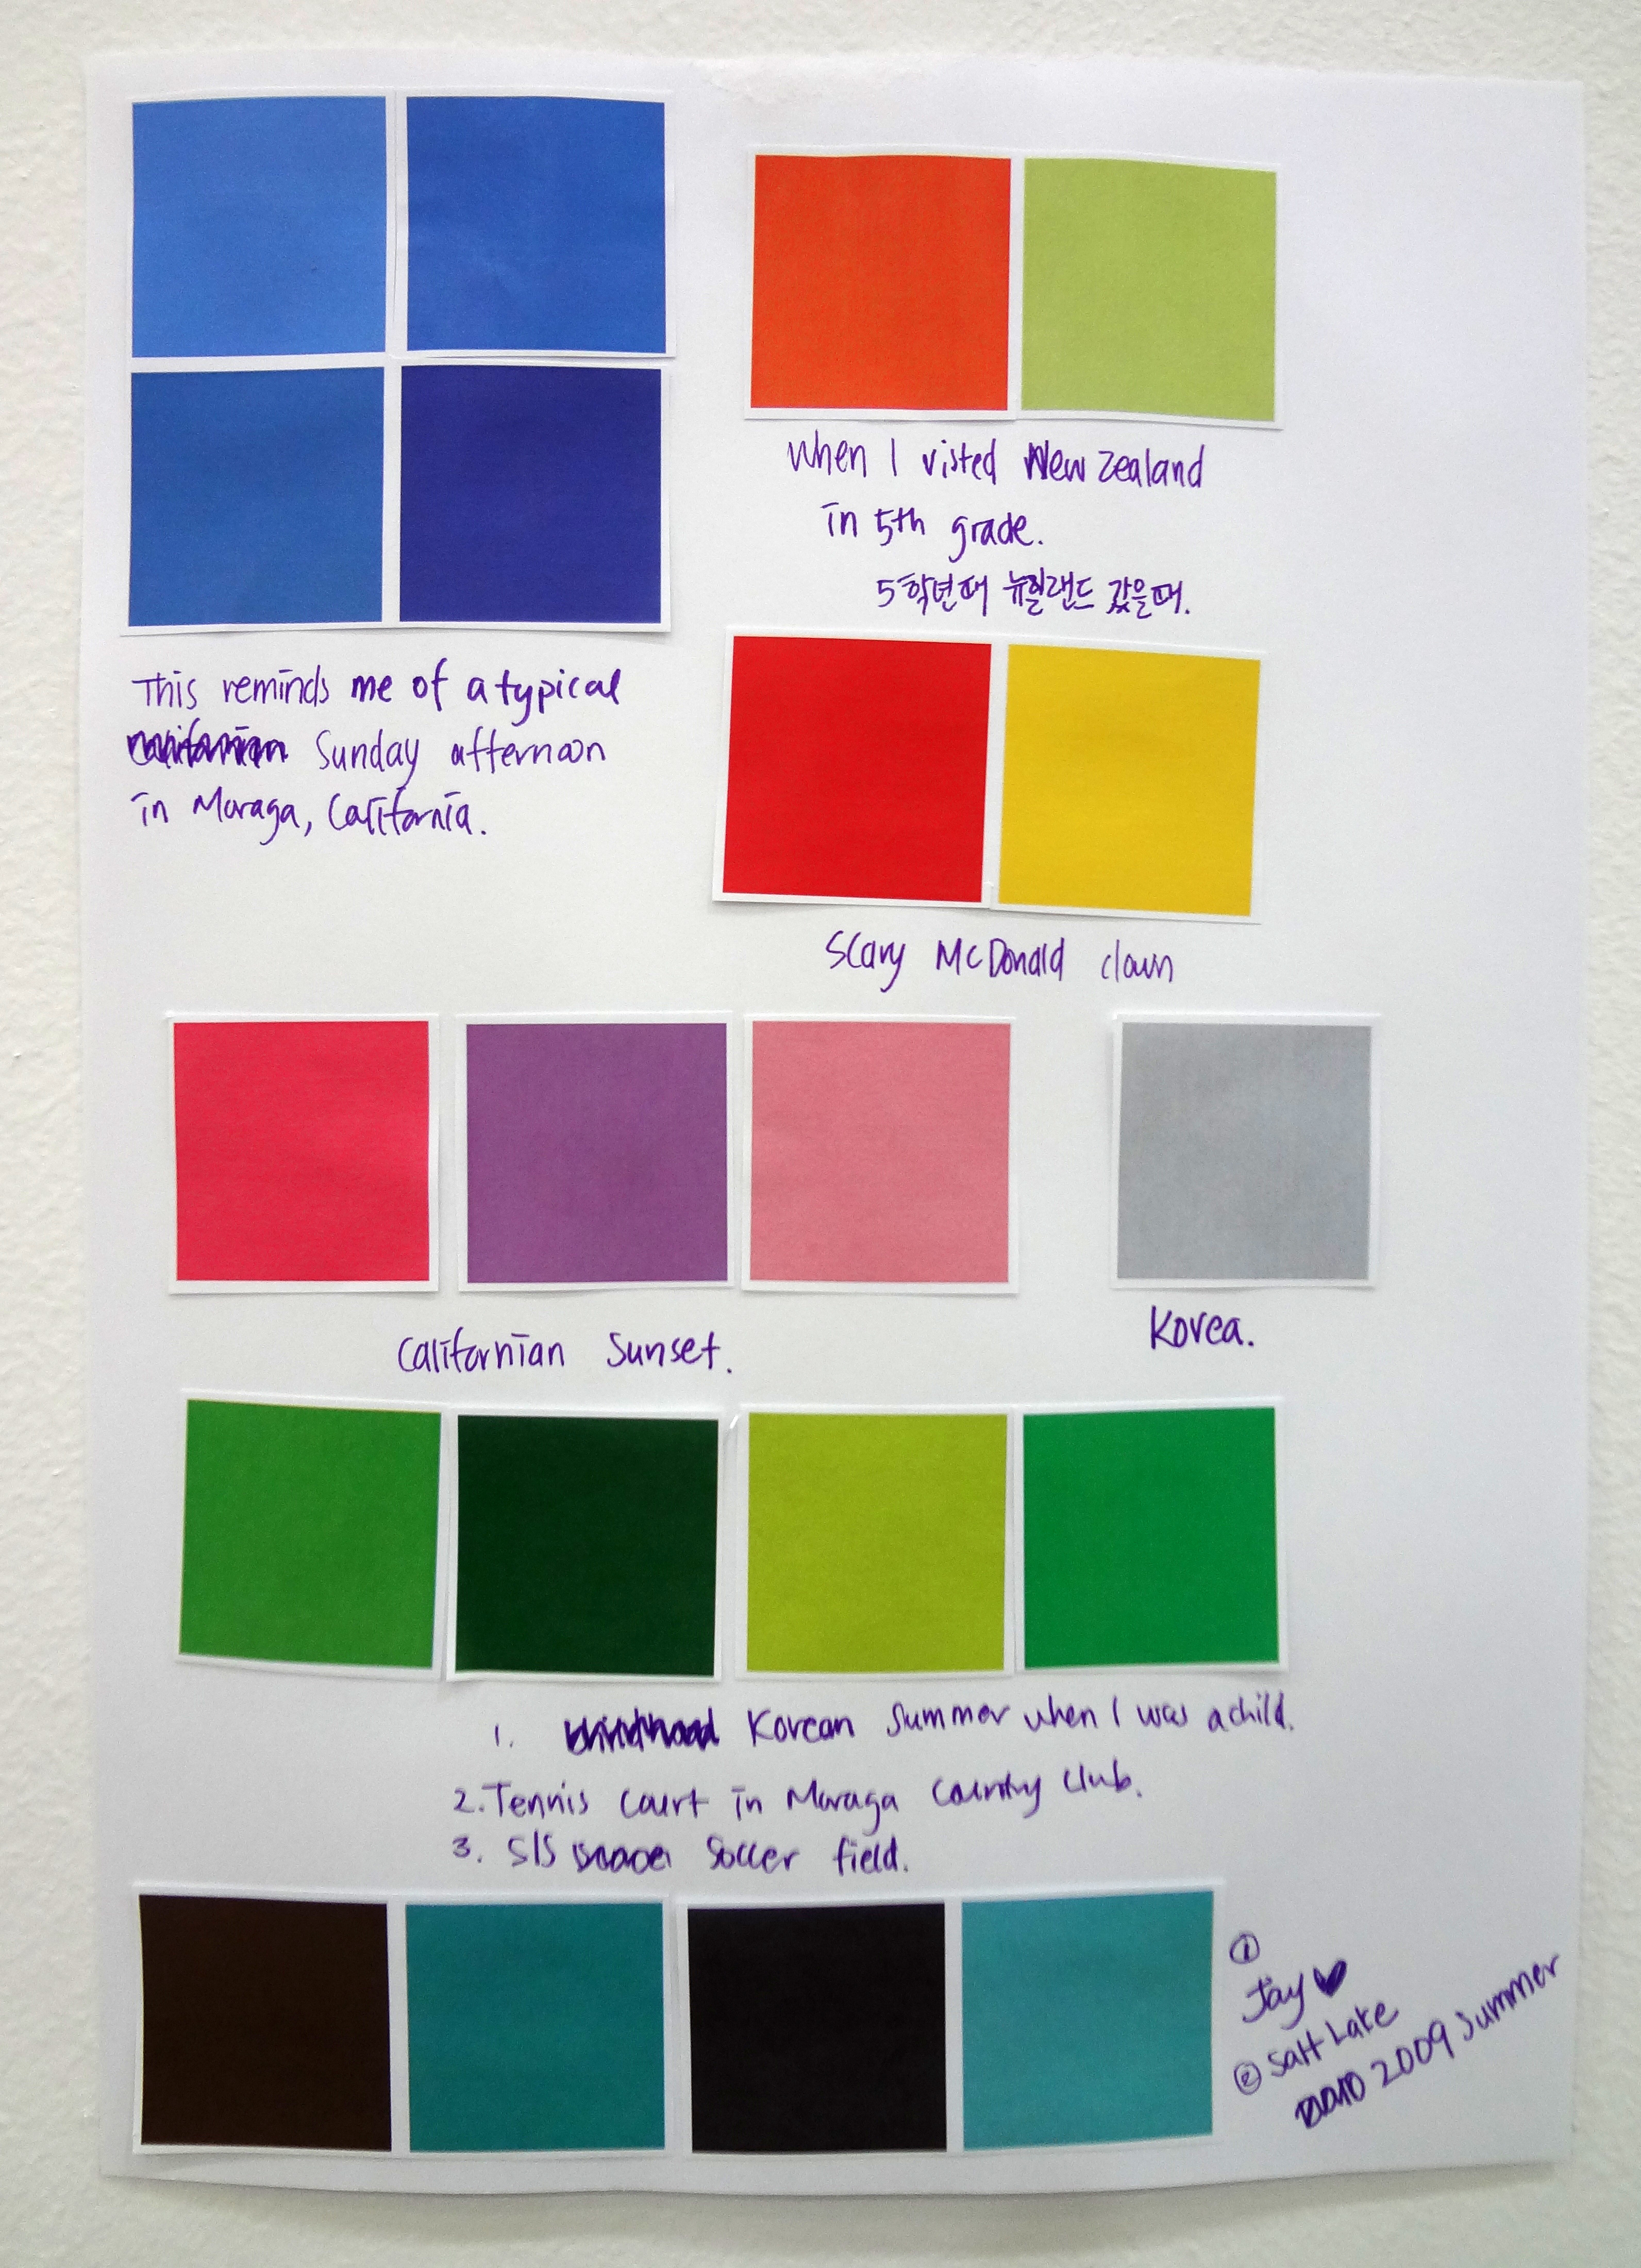 This reminds me of a typical
Sunday afternoon
in Moraga, California.
When I visted New Zealand
in 5th grade.
5학년때 뉴질랜드 갔을때.
Scary McDonald clown
Californian Sunset.
Korea.
1. Korean Summer when I was a child.
2. Tennis Court in Moraga Country Club.
3. SIS Soccer field.
①
Jay ♥
② Salt Lake
2009 Summer